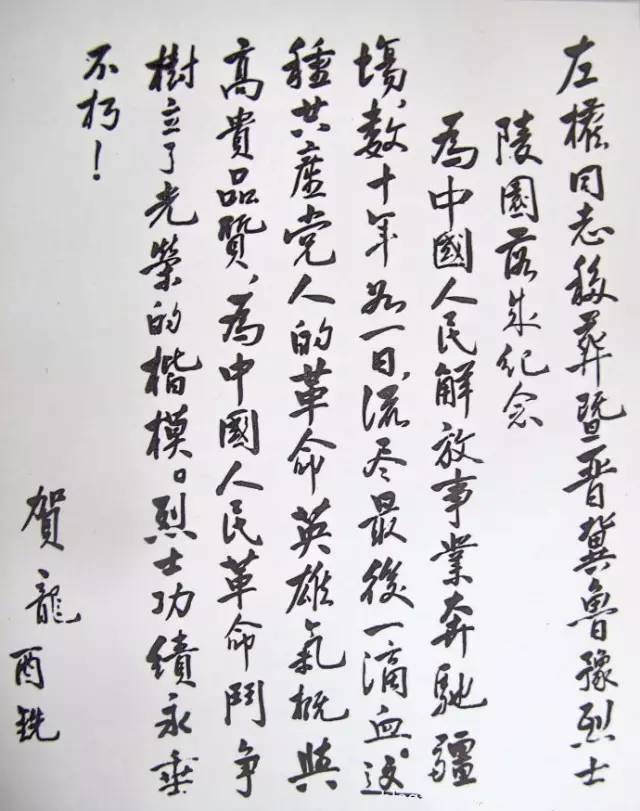 左權同志移葬暨晋冀魯豫烈士
陵園落成纪念
為中國人民解放事業奔馳疆
場、数十年如一日，流尽最後一滴血。这
種共産党人的革命英雄氣概與
高貴品質、為中國人民革命鬥争
樹立了光榮的楷模。烈士功績永垂
不朽！
賀龍